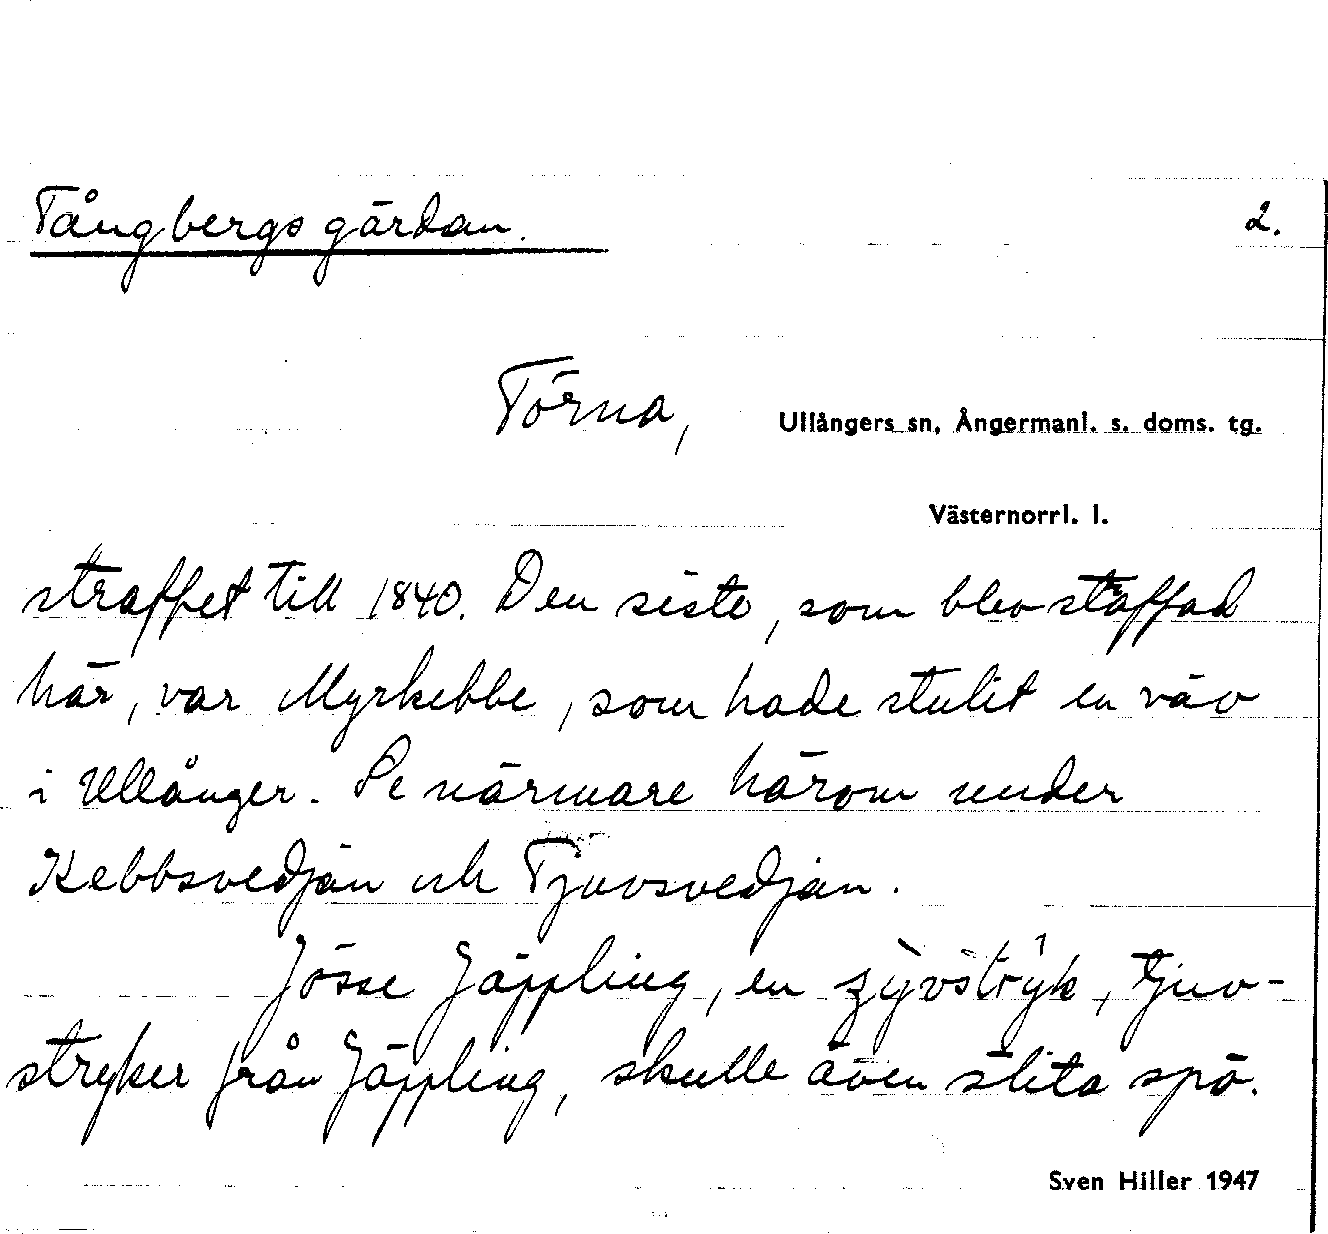 Tångbergsgärdan. 2.
Törna, Ullångers sn, Ångermanl. s. doms. tg.
Västernorrl. l.
straffet till 1840. Den siste, som blev staffad
här, var Myrkebbe, som hade stulit en väv
i Ullånger. Se närmare härom under
Kebbsvedjan och Tjuvsvedjan.
Jösse Jäppling, en
tjuv-
stryker från Jäppling, skulle även slita spö.
Sven Hiller 1947